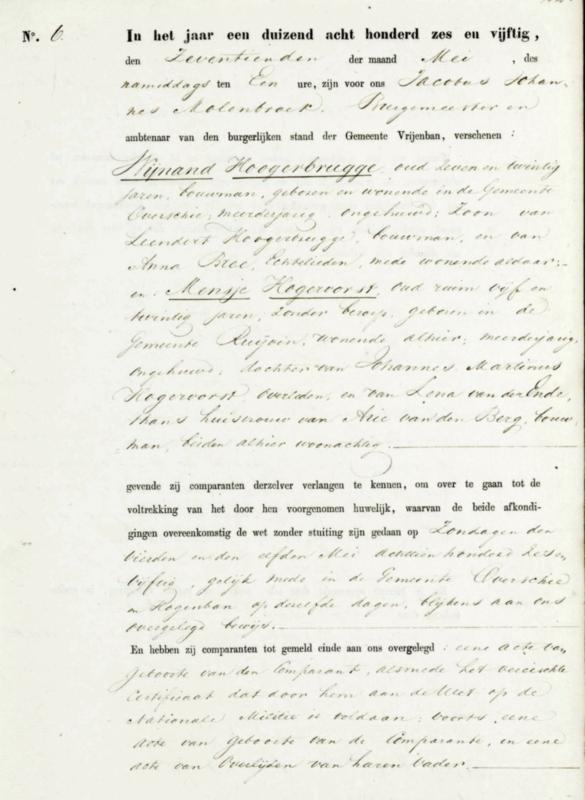 N°. 6.
In het jaar een duizend acht honderd zes en vijftig,
den Zeventienden der maand Mei, des
namiddags ten Een ure, zijn voor ons Jacobus Johan-
nes Molenbroek. Burgemeester en
ambtenaar van den burgerlijken stand der Gemeente Vrijenban, verschenen:
Wijnand Hoogerbrugge, oud zeven en twintig
jaren, bouwman, geboren en wonende in de Gemeente
Overschie; meerderjarig, ongehuwd; Zoon van
Leendert Hoogerbrugge, bouwman, en van
Anna Bree, Echtelieden, mede wonende aldaar;-
en Mensje Hogervorst, oud ruim vijf en
twintig jaren, zonder beroep, geboren in de
Gemeente, wonende alhier; meerderjarig,
ongehuwd; dochter van Johannes Martinus
Hogervorst, overleden, en van Lena van der Ende,
thans huisvrouw van Arie van den Berg, bouw-
man, beiden alhier woonachtig.
gevende zij comparanten derzelver verlangen te kennen, om over te gaan tot de
voltrekking van het door hen voorgenomen huwelijk, waarvan de beide afkondi-
gingen overeenkomstig de wet zonder stuiting zijn gedaan op Zondagen den
vierden en den elfden Mei achttienhonderd zes en
vijftig, gelijk mede in de Gemeente Overschie
en Hogenban op dezelfde dagen, blijkens aan ons
overgelegd bewijs.
En hebben zij comparanten tot gemeld einde aan ons overgelegd: eene acte van
Geboorte van den Comparant, alsmede het vereischte
Certificaat dat door hem aan de Wet op de
Nationale Militie is voldaan; voorts, eene
acte van Geboorte van de Comparante, en eene
acte van Overlijden van haren vader.